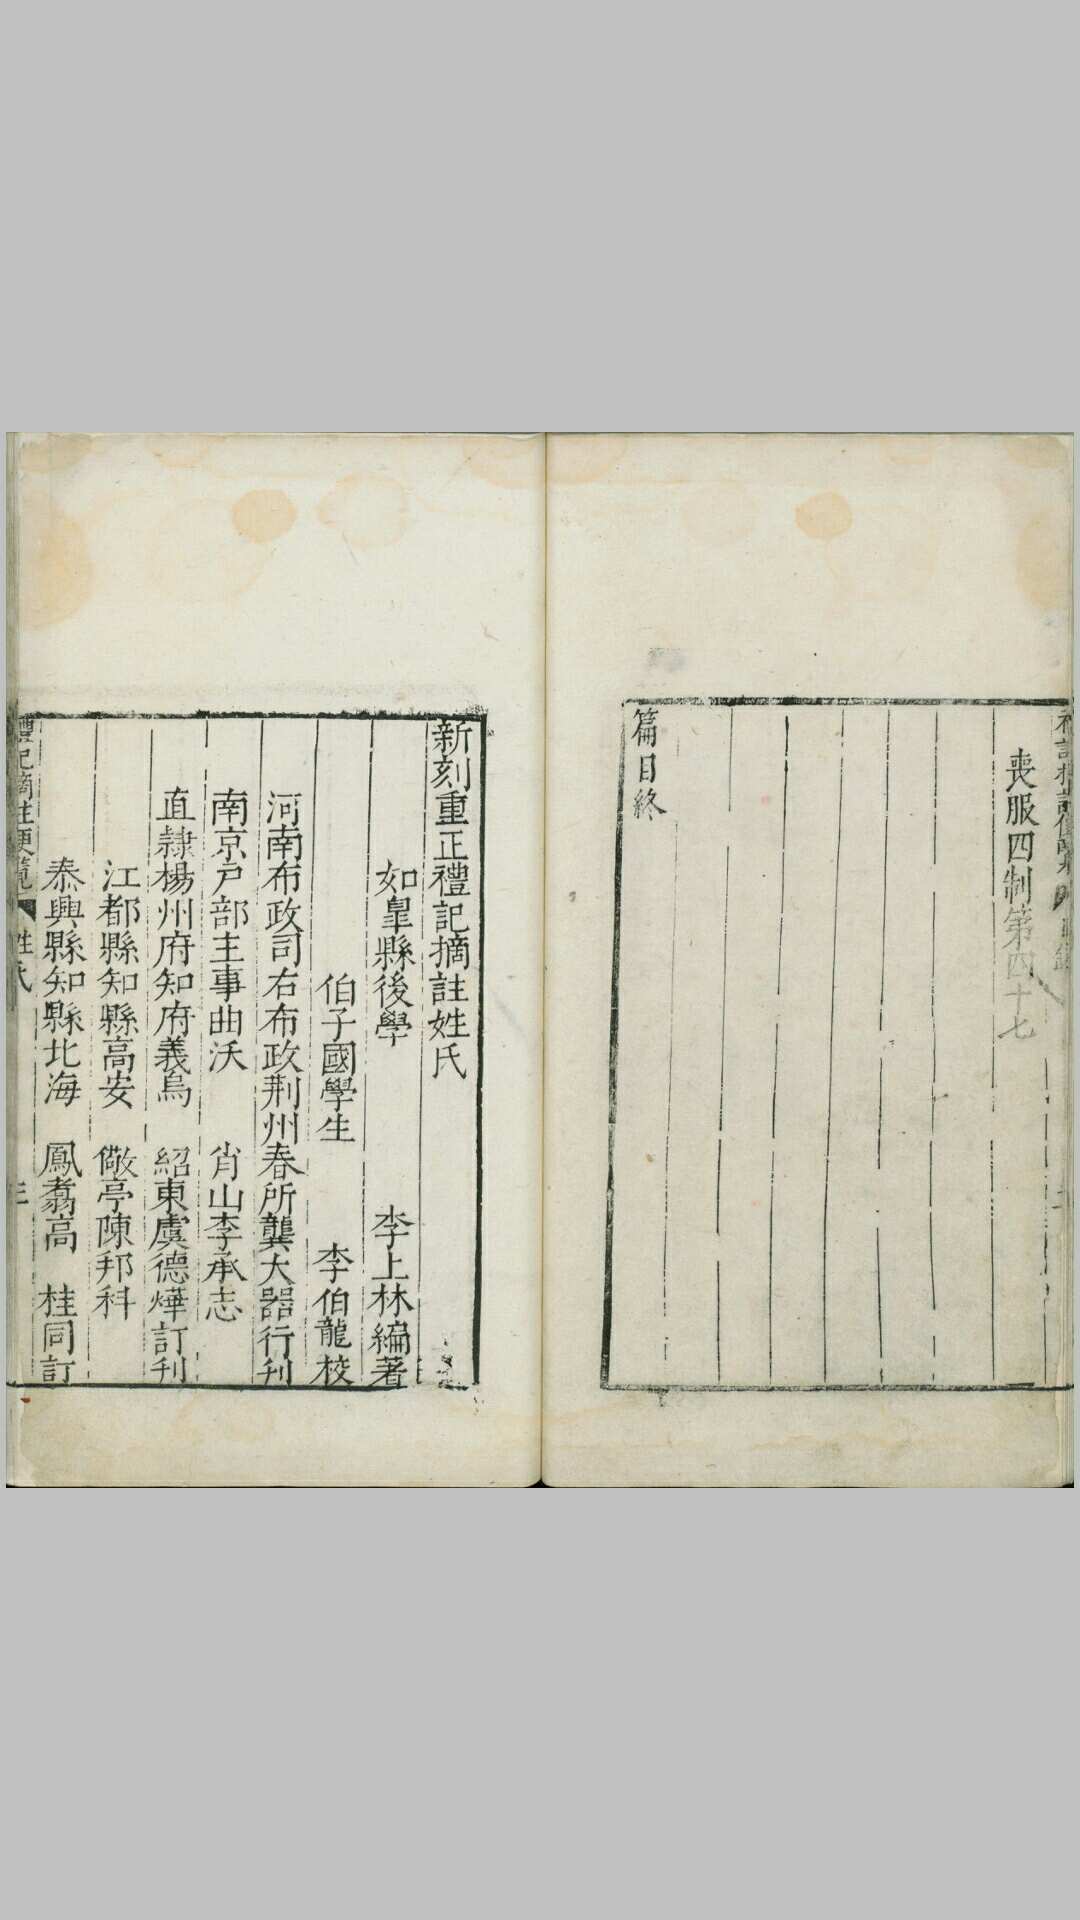 喪服四制第四十七
篇目終
新刻重正禮記摘註姓氏
如皐縣後學 李上林編著
伯子國學生 李伯龍校
河南布政司右布政荆州春所龔大器行刊
南京戶部主事曲沃 肖山李承志
直隸楊州府知府義烏 紹東虞德燁訂刊
江都縣知縣高安 儆亭陳邦科
泰興縣知縣北海 鳳翥高 桂同訂
禮記摘註便覧 姓氏 三